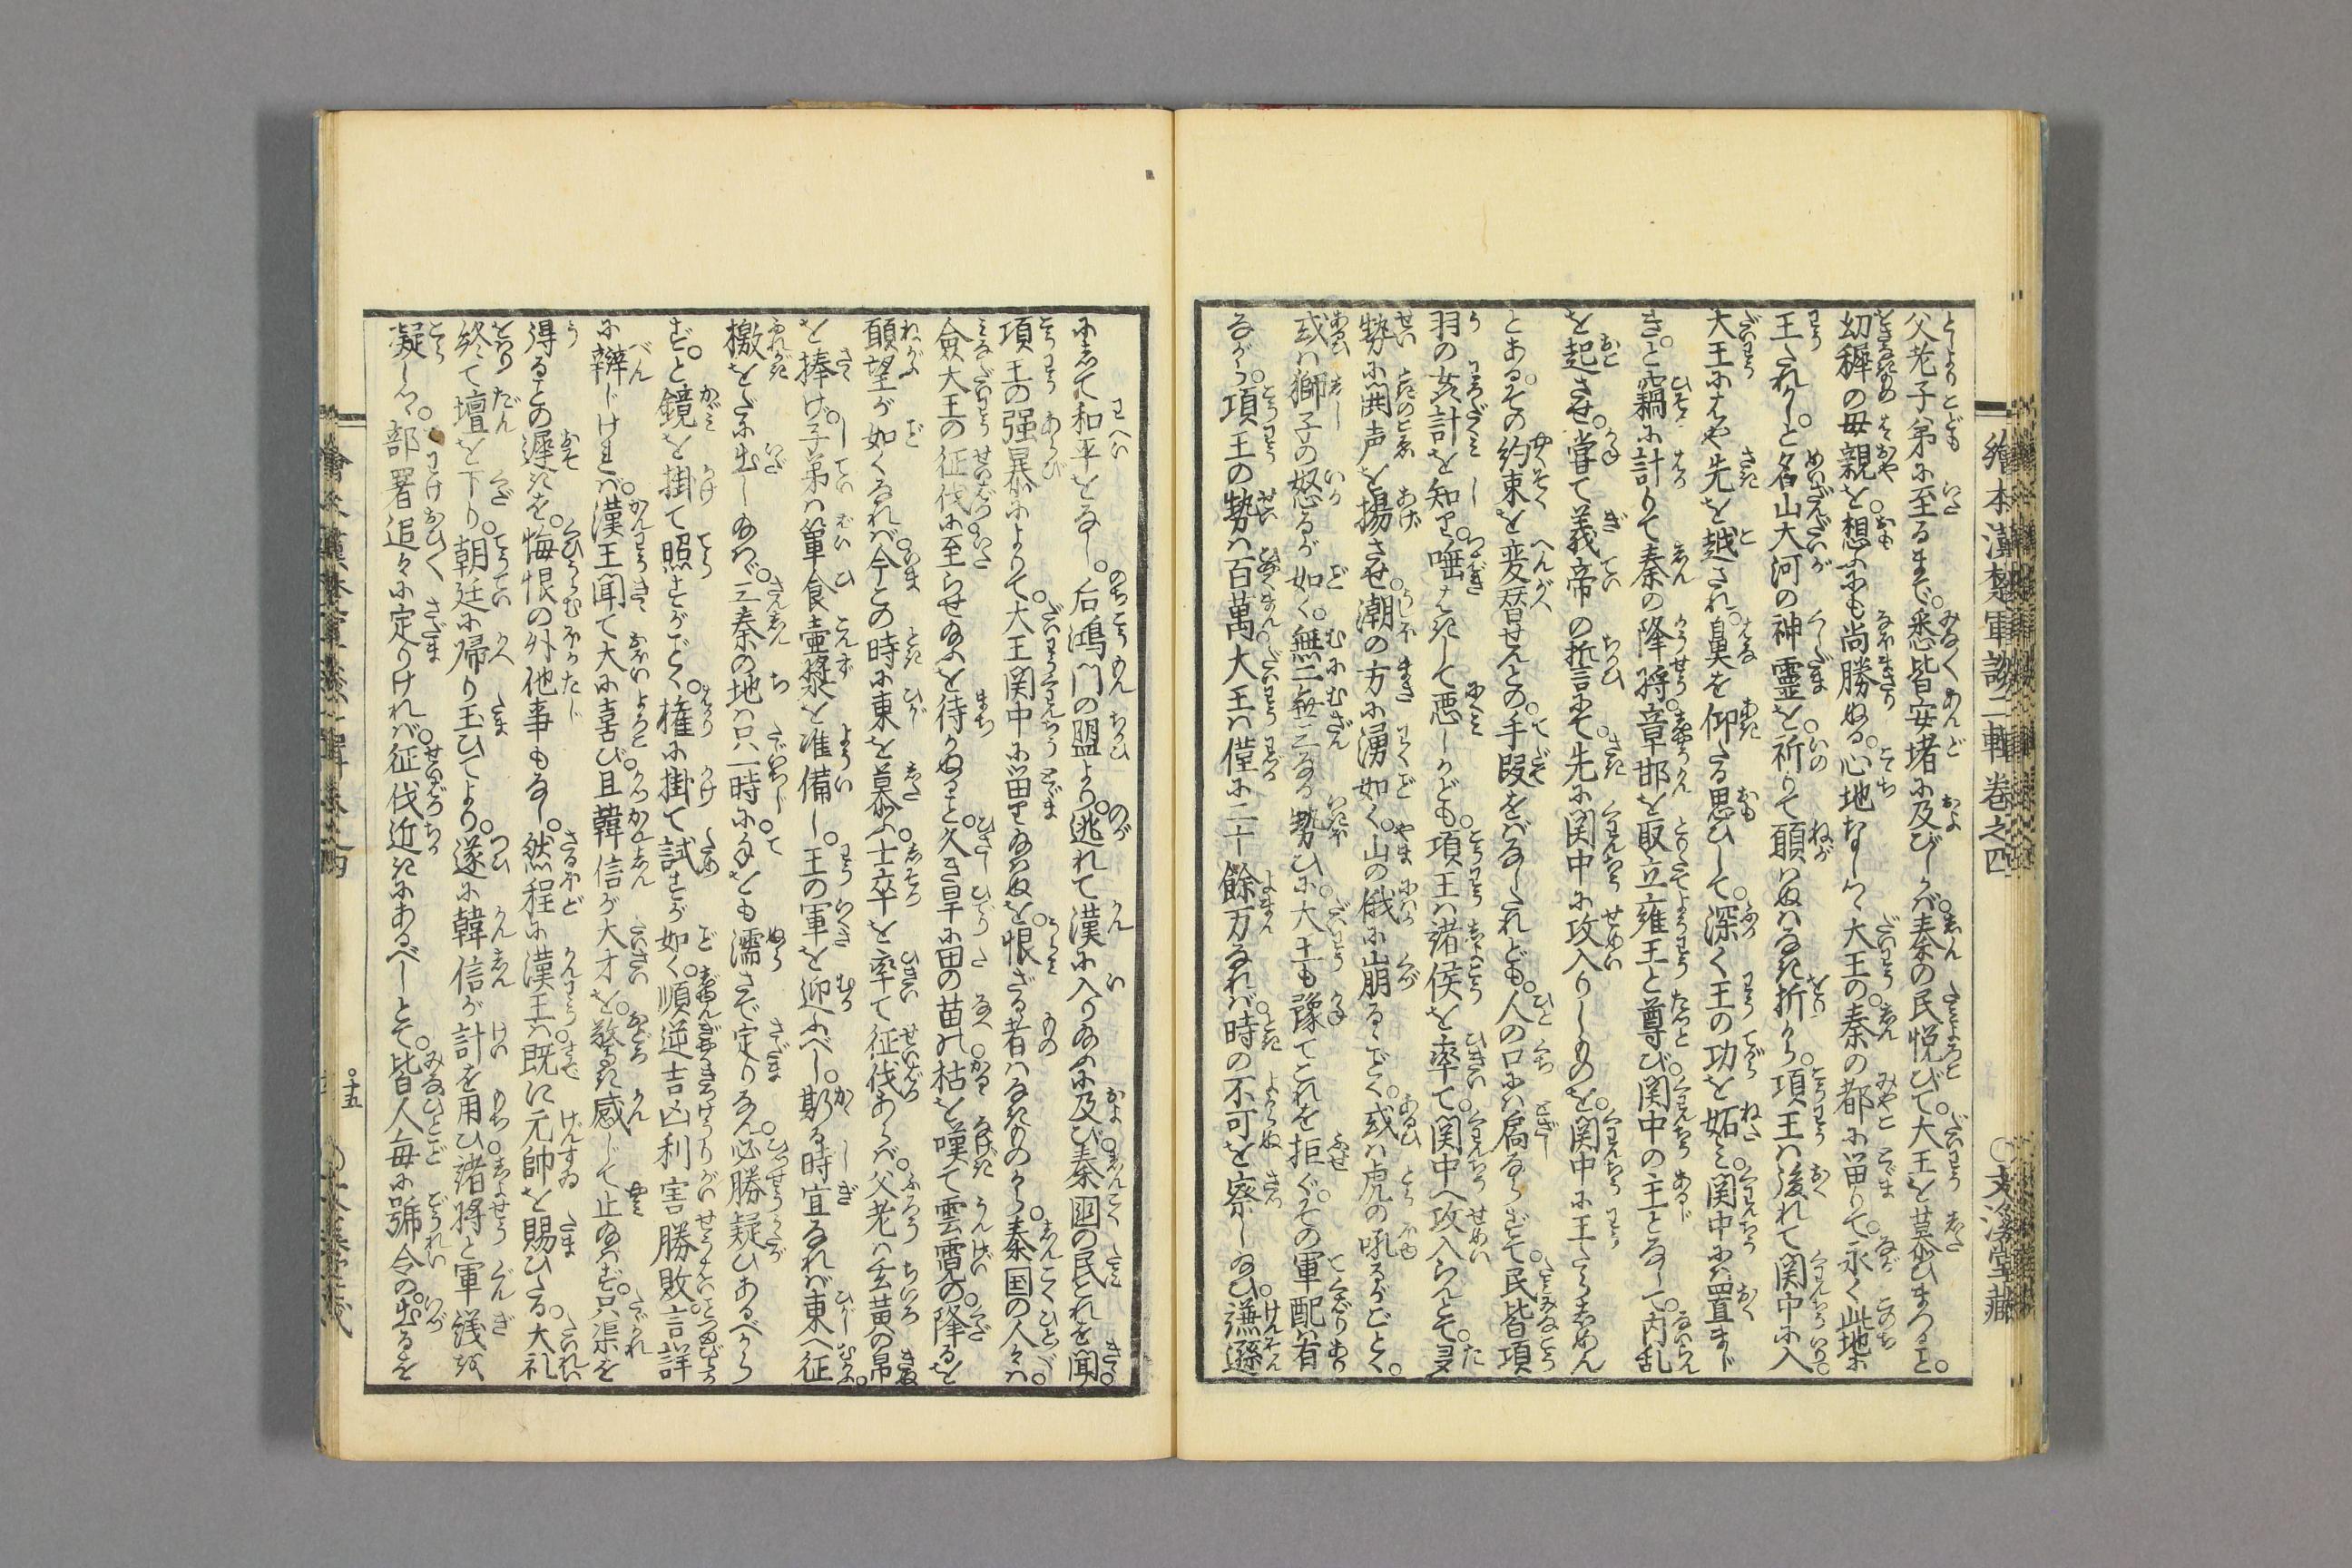 繪本漢楚軍談二輯卷之四
〇文溪堂藏
父老子弟に至るまで。悉皆安堵に及びしかバ。秦の民悦びて。大王を慕ひまつること。
幼穉の毋親を。想ふにも尚勝ぬる。心地なしつゝ大王の。秦の都に畄りて。永く此地に
王たれかしと。名山大河の神霊を。祈りて願ハぬハなき折から。項王ハ後れて関中に入
大王にはや先を越され。鼻を仰たる思ひして。深く王の功を妬ミ。関中にハ置まじ
き。と竊に計りて秦の降將。章邯を取立雍王と尊び。関中の主となして。内乱
を起させ。甞て義帝の誓言にて。先に関中に攻入りしものを。関中に王たらしめん
とある。その約束を変替せんとの。手段をばなしたれども。人の口にハ扃ならずて。民皆項
羽の奸計を知り。唾はきして悪しかども。項王ハ諸侯を率て。関中へ攻入らんとて。
勢に鬨声を揚させ。潮の方に湧如く。山の俄に崩るゝごとく。或ハ虎の吼るがごとく。
或ハ獅子の怒るが如く。無二無三なる勢ひに。大王も豫てこれを拒ぐ。その軍配ハ有
ながら。項王の勢ハ百萬。大王ハ僅に二十餘万なれバ。時の不可を察し給ひ。謙遜
にして和平をなし。后鴻門の盟より。逃れて漢に入り給ふに及び。秦國の民これを聞。
項王の强暴によりて。大王関中に畄り給ハぬを。恨ざる者ハなきものから。秦国の人々ハ。
僉大王の征伐に。至らせ給ふを待かぬること。久き旱に田の苗の。枯を嘆て雲霓の。降るを
願望が如くなれバ。今この時に東を慕ふ。士卒を率て征伐あらバ。父老ハ玄黄の帛
を捧げ。子弟ハ簞食壷漿を准備し。王の軍を迎ふべし。斯る時宜なれバ東へ征ふ。
檄をだに出し給ハゞ。三秦の地ハ只一時に。手をも濡さで定りなん。必勝疑ひあるべから
ず。と鏡を掛て照すがごとく。権に掛て試すが如く。順逆吉凶利害勝敗。言詳
に辯じければ。漢王聞て大に喜び。且韓信が大才を。驚き感じて止給ハず。只渠を
得ることの遅きを。悔恨の外他事もなし。然程に漢王ハ。既に元帥を賜ひたる。大礼
終て壇を下り。朝廷に帰り玉ひてより。遂に韓信が計を用ひ。諸將と軍議を
凝しつゝ。部署追々に定りければ。征伐近きにあるべしとて。皆人毎に號令の。出るを
〇十五